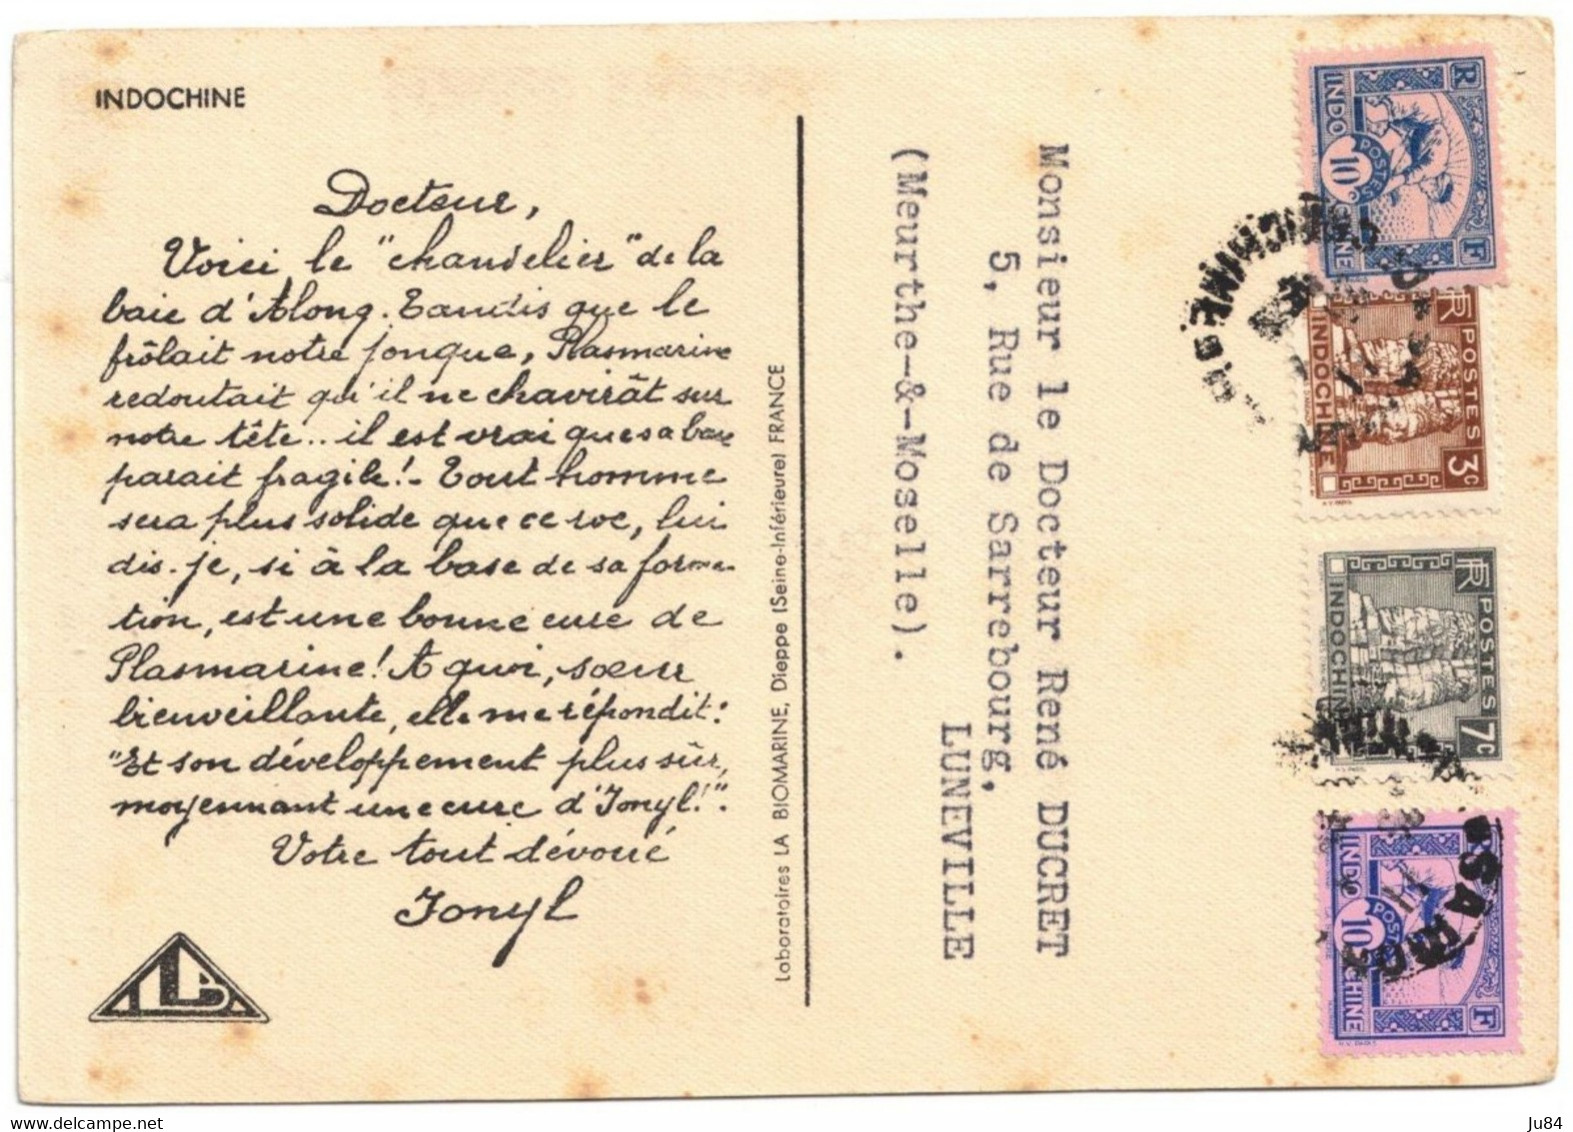 INDOCHINE
Docteur,
Voici le "chandelier" de la
baie d'Along. Tandis que le
frôlait notre jonque, Plasmarine
redoutait qu'il ne chavirât sur
notre tête.. il est vrai que sa base
parait fragile! - Tout homme
sera plus solide que ce roc, lui
dis-je, si à la base de sa forma-
tion, est une bonne cure de
Plasmarine! A quoi, sœur
bienveillante, elle me répondit:
"Et son développement plus sûr,
moyennant une cure d'Ionyl!".
Votre tout dévoué
Ionyl
Laboratoires LA BIOMARINE, Dieppe (Seine-Inférieure) FRANCE
Monsieur le Docteur René DUCRET
5, Rue de Sarrebourg,
LUNEVILLE
(Meurthe-&-Moselle).
RF
INDOCHINE
POSTES
10c
RF POSTES 3c
INDOCHINE
RF POSTES 7c
INDOCHINE
RF
INDOCHINE
POSTES
10
www.delcampe.net
ju84